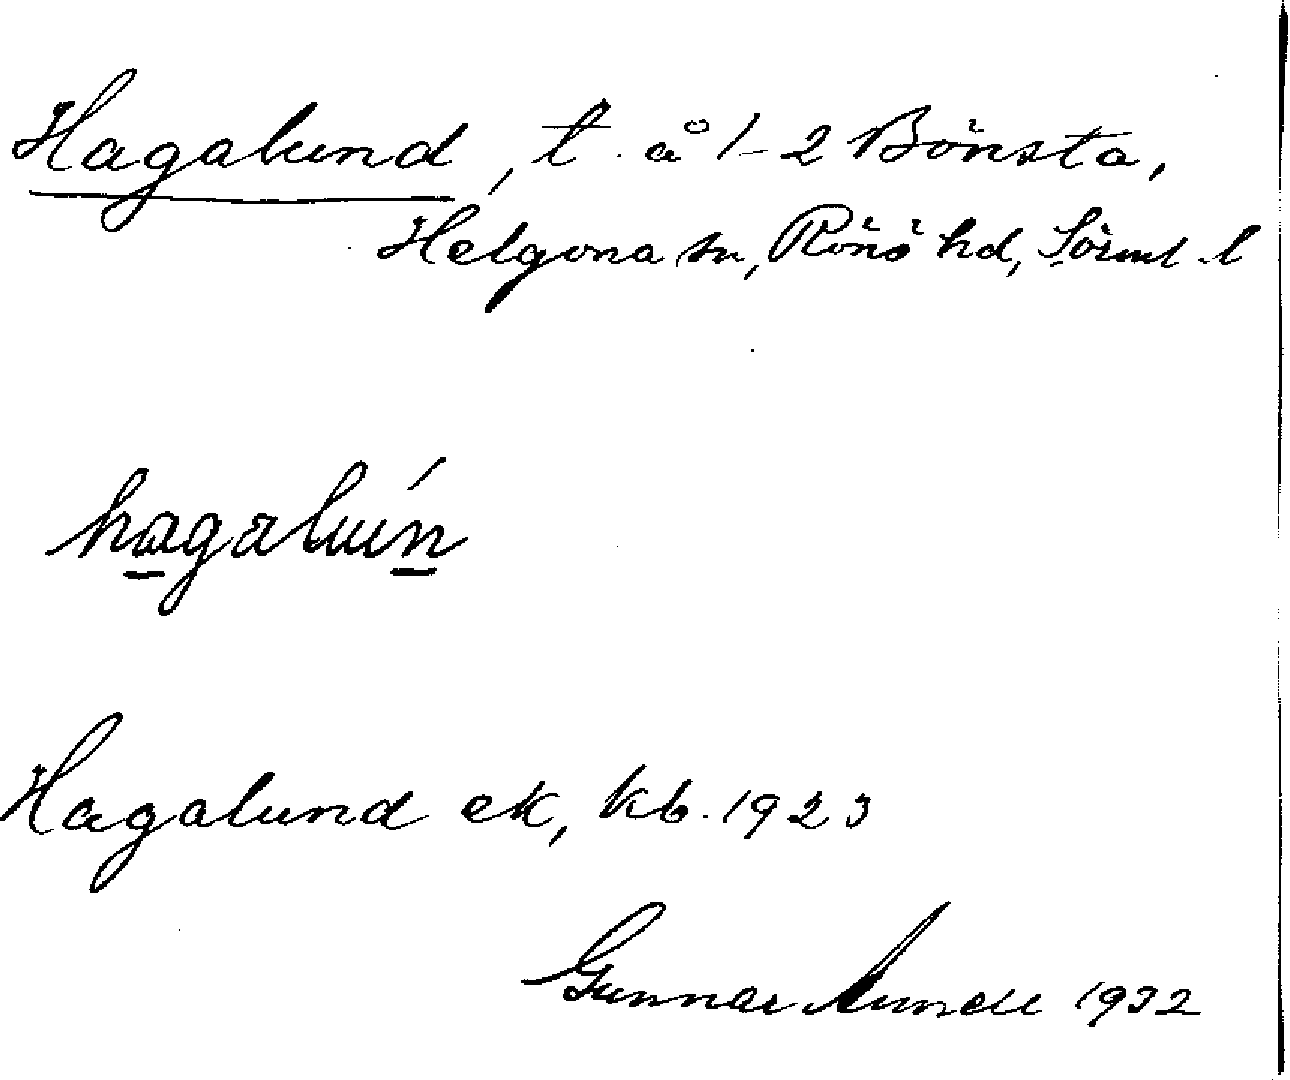 Hagalund, t. å 1-2 Bönsta,
Helgona sn, Rönö hd, Sörml. l
hagalún
Hagalund ek, kb. 1923
Gunnar Lundh 1932